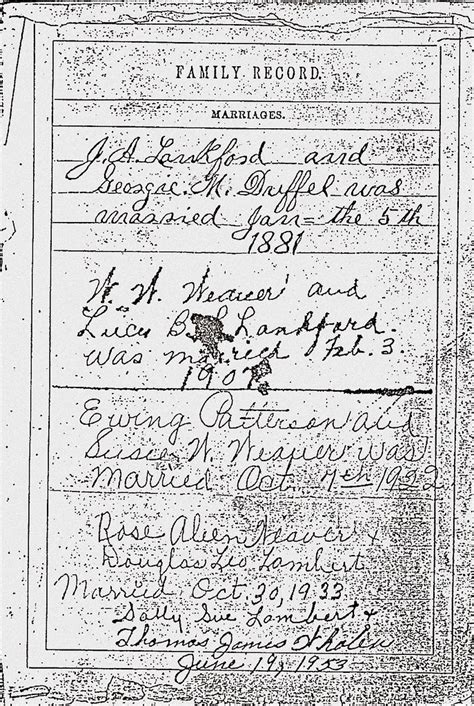 FAMILY RECORD.
MARRIAGES.
J. A. Lankford and
Georgae. M. Duffel was
married Jan= the 5th
1881
W. W. Weaver and
Lucy B. Lankford.
was married Feb. 3.
1907
Ewing Patterson and
Susie W. Weaver was
Married Oct 7th 1932
Rose Aleen Weaver &
Douglas Leo Lambert
Married Oct. 30, 1933
Sally Sue Lambert &
Thomas James Whalen
June 19, 1953